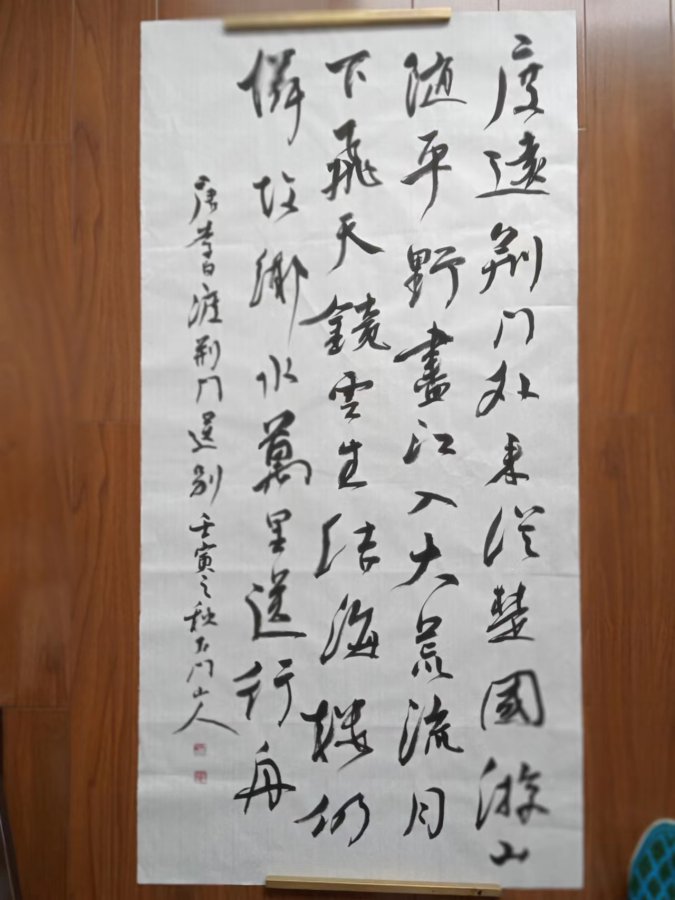 度遠荆門外来從楚國游山
随平野盡江入大荒流月
下飛天鏡雲生結海樓仍
憐故鄉水萬里送行舟
唐李白渡荆門送别 壬寅之秋石門山人